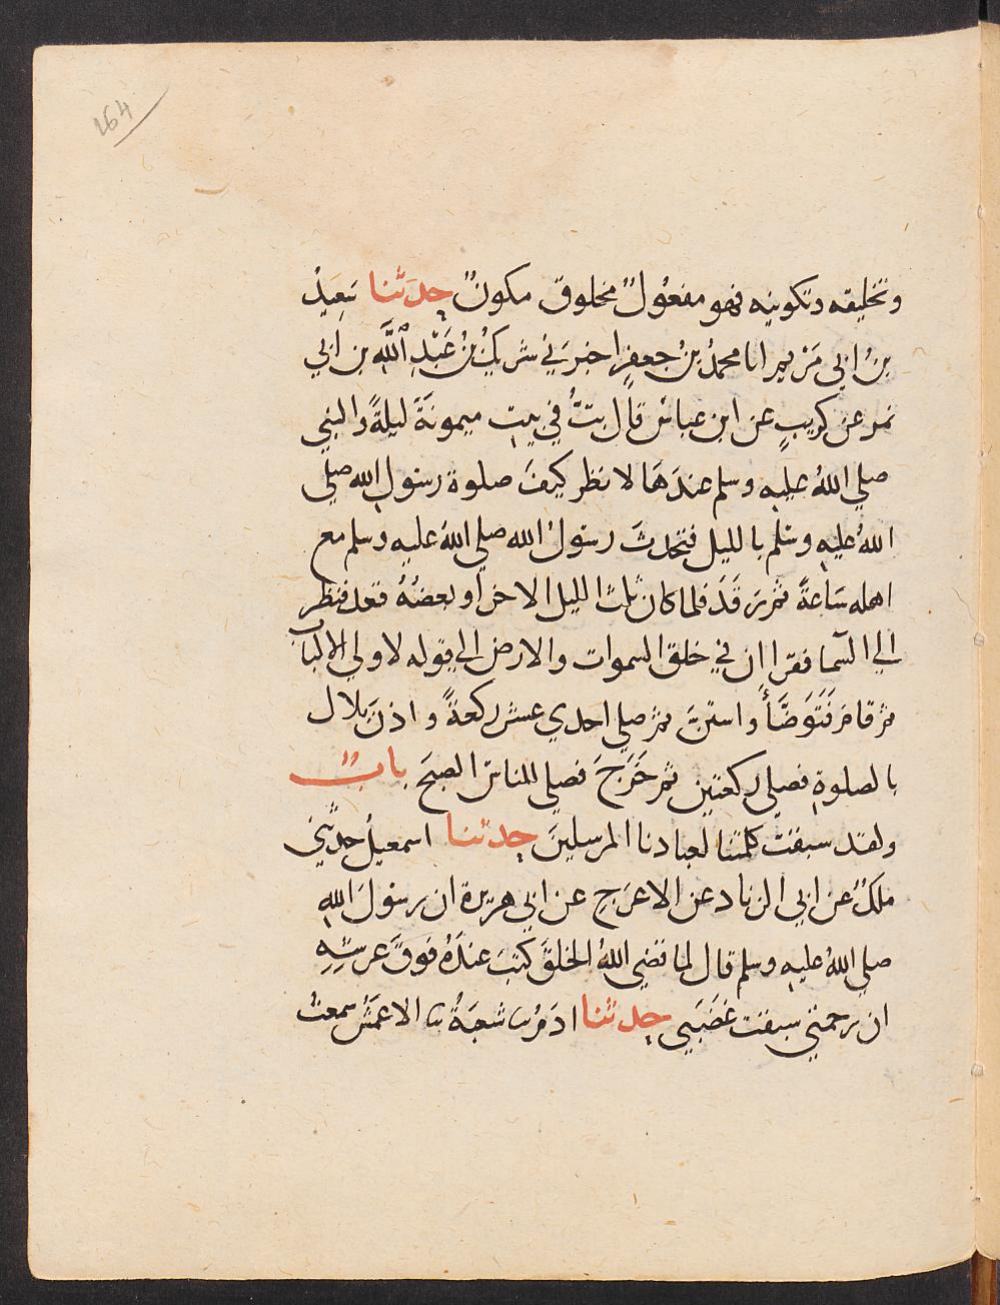 264
وتخليقه وتكوينه فهو مفعُول مخلوق مكونٌ حدثنا سَعِيدُ
بنُ ابي مَرْيم انا محمدُ بنُ جعفرٍ اخبرَني شريكُ بْنُ عَبْدِ اللَّهِ بن ابي
نمر عن كريبٍ عن ابن عباسٍ قال بتُّ في بيت ميمونَةَ ليلةً والنبي
صلي اللهُ عليه وسلم عندَهَا لانظر كيفَ صلوة رسول الله صلي
اللهُ عليه وسلم بالليل فتحدثَ رسولُ الله صلي اللهُ عليه وسلم مع
اهله سَاعةً ثم رَقَدَ فلما كان ثلثُ الليل الاخر او بعضُهُ قعد فنظر
الي السما فقرا ان في خلق السموات والارض الي قوله لاولي الالباب
ثم قامَ فَتَوَضَّأَ واستنَّ ثم صلي احدي عشر ركعةً و اذنَ بلال
بالصلوةِ فصلي ركعتين ثم خَرَجَ فصلي للناس الصبحَ بابٌ
ولقد سبقت كلمتنا لعبادنا المرسلينَ حدثنا اسمعيلُ حدثني
ملكٌ عن ابي الزناد عن الاعرَجِ عن ابي هريرة ان رسولَ اللهِ
صلي اللهُ عليه وسلم قال لما قضي اللهُ الخلقَ كتبَ عندَهُ فوقَ عرشِهِ
ان رحمتي سبقت غضَبي حدثنا ادَمُ نا شعبَةُ نا الاعمَشُ سمعتُ